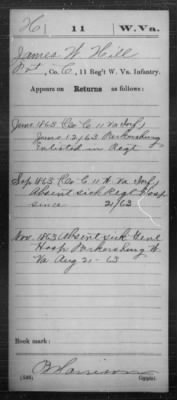 H | 11 | W. Va.
James W Hill
Pvt, Co. C, 11 Reg't W. Va. Infantry.
Appears on Returns as follows:
June 1863 Co C 11 Va Inf
June 12/63 Parkersburg
Enlisted in Regt
Sep 1863 Co C 11 W. Va Inf
Absent sick Regt Hosp
since 21/63
Nov 1863 Absent sick Genl
Hosp Parkersburg W
Va Aug 21-63
Book mark:
(546)
Copyist.